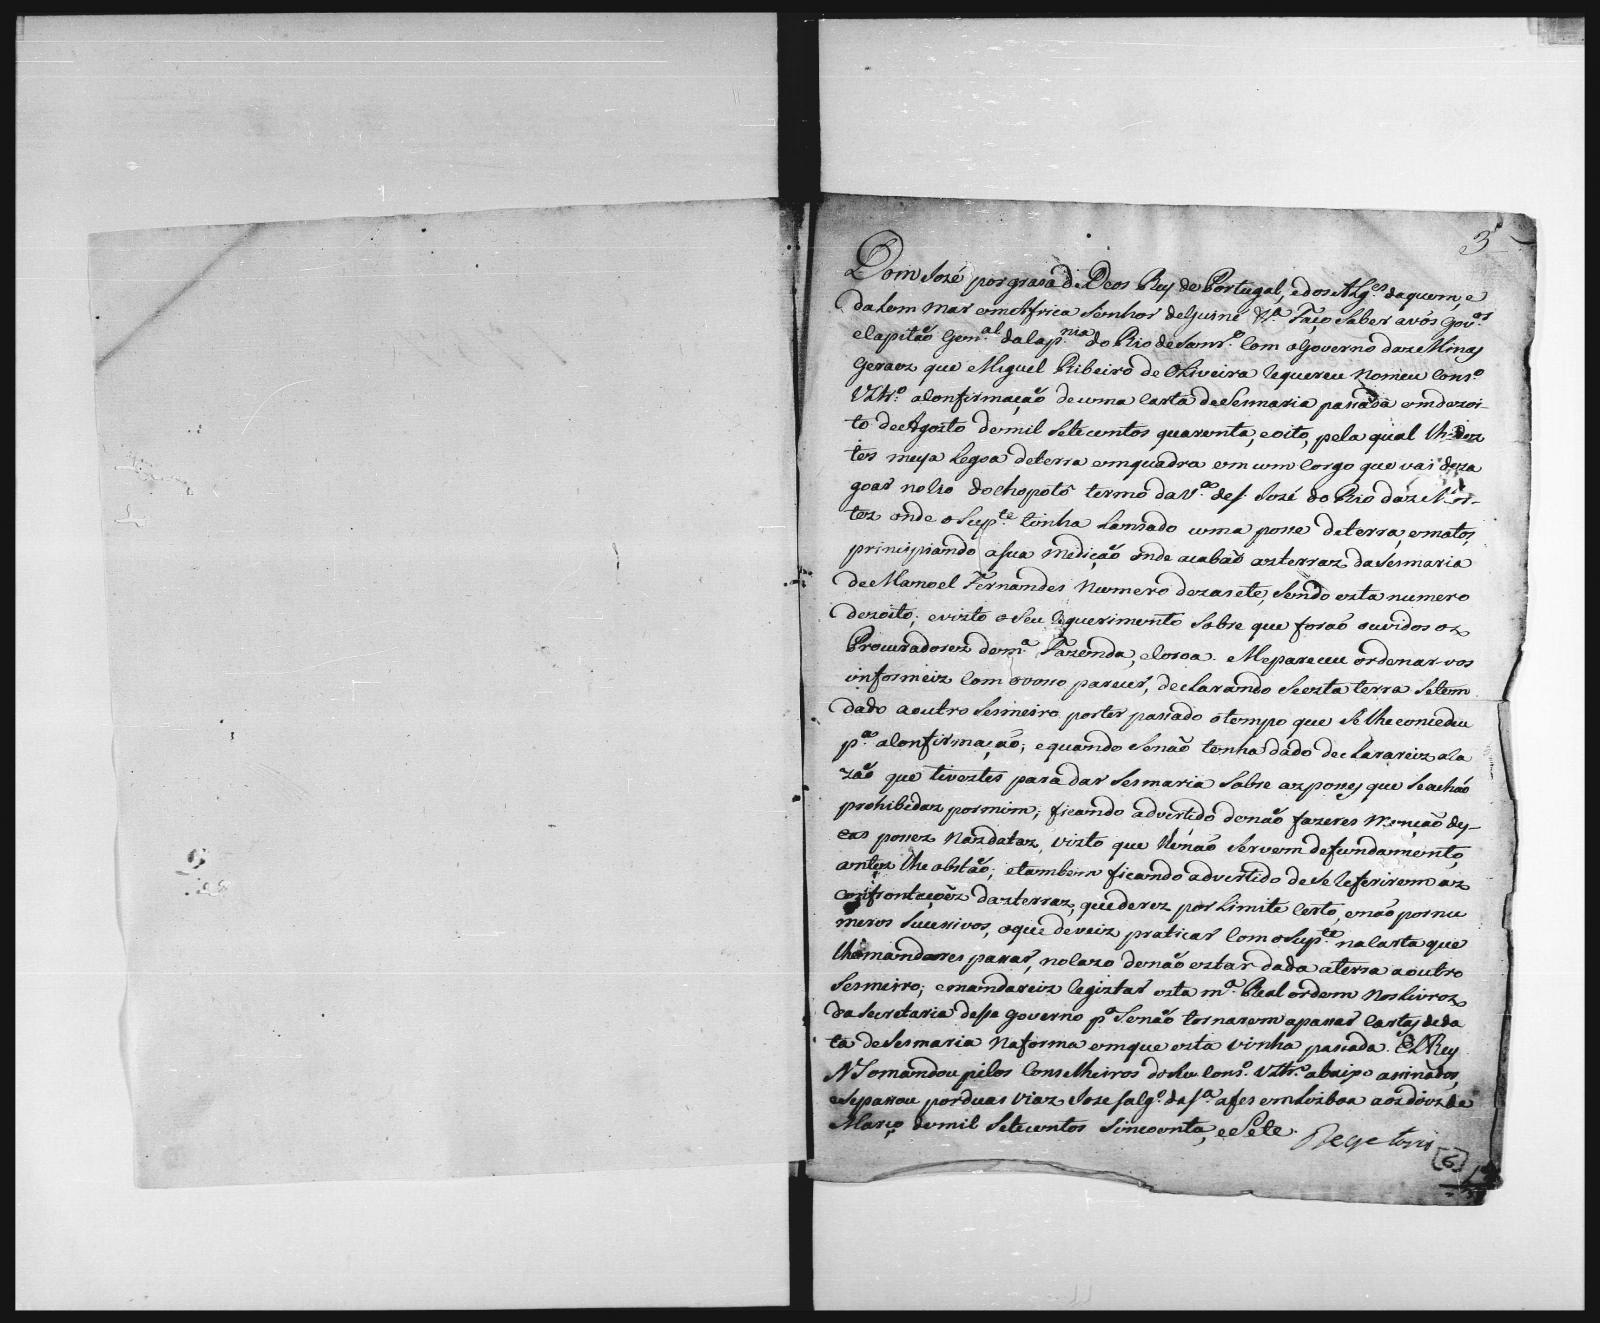 3
Dom José por grasa de Deos Rey de Portugal, e dos Alg.es daquem, e
dalem mar em Africa Senhor de Guine &.a Faço Saber a vós Gov.or
e Capitão Gen.al da Cap.nia do Rio de Janr.o Com o Governo daz Minaz
Geraez que Miguel Ribeiro de Oliveira requereu no meu Cons.o
Ultr.o a Confirmação de uma Carta de Sesmaria passada em dezoi-
to de Agozto de mil Setecentos quarenta, e oito, pela qual lhe dez
tes meya Legoa de terra em quadra em um Corgo que vai deza
goar no Rio do Chopotó termo da V.a de S. José do Rio daz Mor-
tez onde o Sup.te tinha Lansado uma posse de terra, e matos,
principiando a sua medição onde acabaõ az terraz da Sesmaria
de Manoel Fernandes Numero dezasete, Sendo ezta numero
dezoito; e vizto o Seu requerimento Sobre que foraõ ouvidos oz
Procuradorez de m.a Fazenda, e Coroa. Me pareceu ordenar-vos
informeiz Com o vosso parecer, declarando Se ezta terra Se tem
dado a outro Sesmeiro por ter passado o tempo que Se lhe concedeu
p.a a Confirmação; e quando Se naõ tenha dado declarareiz a Ra
zão que tiveztes para dar Sesmaria Sobre az posses que Se achaõ
prohibidaz por mim; ficando advertido de naõ fazeres menção des-
sas possez Naz dataz, vizto que Naõ Servem de fundamento,
antez lhe obstão; e tambem ficando advertido de Se Referirem az
confrontaçoẽz daz terraz, que derez por Limite Certo, e naõ por nu
meros Sucessivos, o que deveiz praticar Com o Sup.te na Carta que
lhe mandares passar, no Cazo de naõ eztar dada a terra a outro
Sesmeiro; e mandareiz regiztar ezta m.a Real ordem Nos Livroz
da Secretaria desse governo p.a Se naõ tornarem a passar Cartas de da
ta de Sesmaria Na forma em que ezta vinha passada. El Rey
N S o mandou pelos Conselheiros do Seu Cons.o Ultr.o abaixo assinados,
e Se passou por duas viaz Joze Salg.o da S.a a fes em Lizboa aoz doiz de
Março de mil Setecentos Sincoenta, e Sete.
6